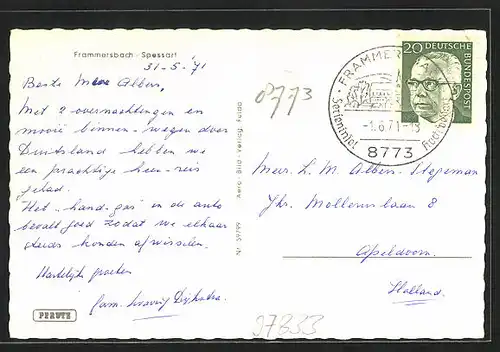 Frammersbach - Spessart
31-5-'71
Beste Mevr Albers,
Met 2 overnachtingen en
mooie binnen-wegen door
Duitsland hebben we
een prachtige heen-reis
gehad.
Het "hand-gas" in de auto
bevalt goed zodat we elkaar
steeds konden afwisselen.
Hartelijke groeten
fam.
PERUTZ
Nr. 59799 Aero-Bild-Verlag, Fulda
8773
FRAMMERS
-1.6.71-18
Ferieninsel
8773
20 DEUTSCHE
BUNDESPOST
Mevr. L. M. Albers-Stegeman
Jhr. Molleruslaan 8
Apeldoorn
Holland.
97833